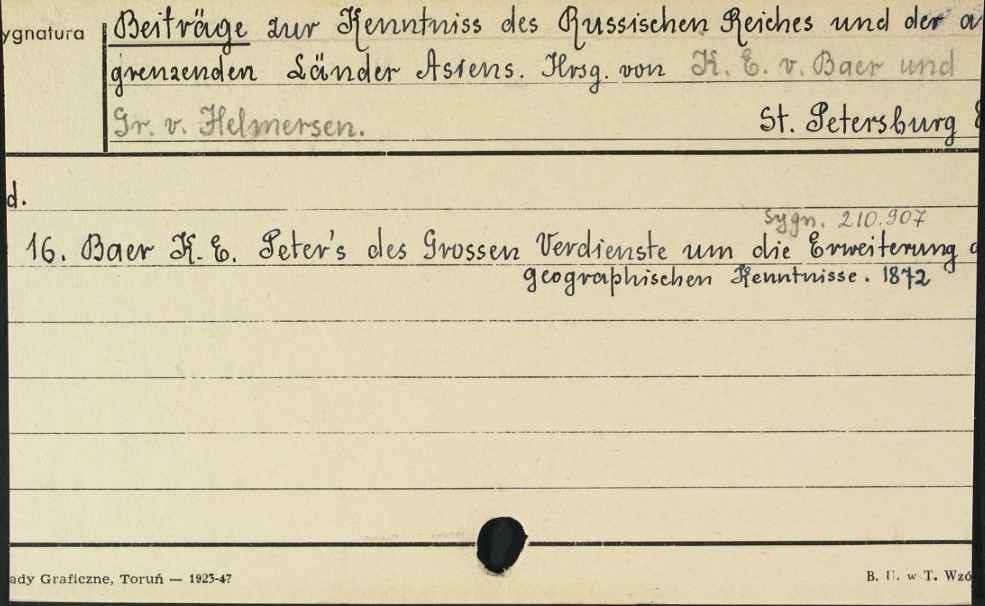 ygnatura
Beiträge zur Kenntniss des Russischen Reiches und der a
grenzenden Länder Asiens. Hrsg. von K. E. v. Baer und
Gr. v. Helmersen. St. Petersburg
d.
Sygn. 210.907
16. Baer K. E. Peter's des Grossen Verdienste um die Erweiterung d
geographischen Kenntnisse. 1872
ady Graficzne, Toruń — 1925-47
B. U. w T. Wzó